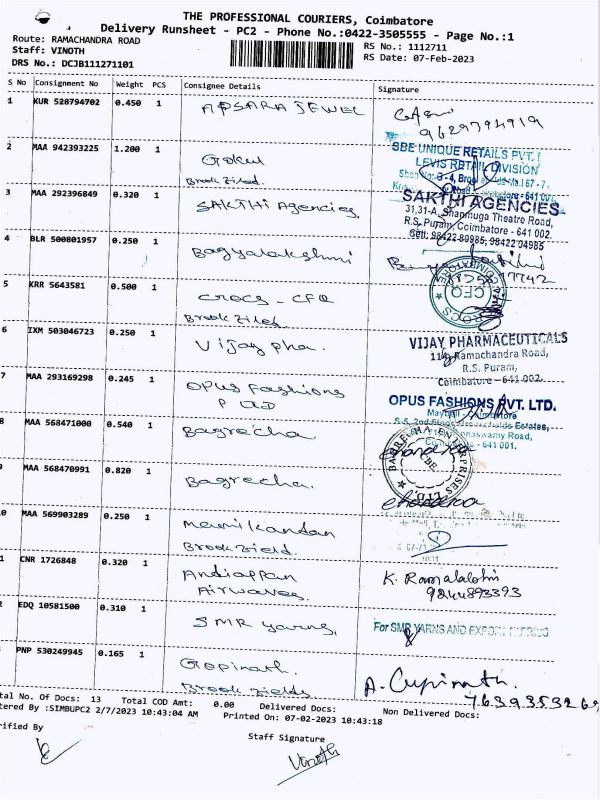 THE PROFESSIONAL COURIERS, Coimbatore
Delivery Runsheet - PC2 - Phone No.:0422-3505555 - Page No.:1
Route: RAMACHANDRA ROAD
RS No.: 1112711
Staff: VINOTH
RS Date: 07-Feb-2023
DRS No.: DCJB111271101
S No Consignment No Weight PCS Consignee Details Signature
1 KUR 528794702 0.450 1 APSARA JEWEL
9629794919
2 MAA 942393225 1.200 1 Gokul
Brook
SBE UNIQUE RETAILS PVT.
LEVIS RETAIL DIVISION
3 MAA 292396849 0.320 1 SAKTHI Agencies,
SAKTHI AGENCIES
31,31-A, Shanmuga Theatre Road,
R.S. Puram, Coimbatore - 641 002.
Cell: 98422 80985, 98422 04985
4 BLR 500801957 0.250 1 Bagyalakshmi
5 KRR 5643581 0.500 1 CROCS - CFQ
Brook
COIMBATORE
CFQ
CROCS
6 IXM 503046723 0.250 1 Vijay pha.
VIJAY PHARMACEUTICALS
Ramachandra Road,
R.S. Puram,
Coimbatore - 641 002.
7 MAA 293169298 0.245 1 OPUS Fashions
P LTD
OPUS FASHIONS PVT. LTD.
8 MAA 568471000 0.540 1 Bagrecha
BAGRECHA ENTERPRISES LTD.
CBE
9 MAA 568470991 0.820 1 Bagrecha.
0 MAA 569903289 0.250 1 Manikandan
Brook Field.
1 CNR 1726848 0.320 1 Andiappan
Airwaves.
K. Ramalakshmi
9244893393
2 EDQ 10581500 0.310 1 SMR yarns,
For SMR YARNS AND EXPORT
3 PNP 530249945 0.165 1 Gopinath.
Brook Fields
A. Gopinath.
tal No. Of Docs: 13 Total COD Amt: 0.00 Delivered Docs: Non Delivered Docs:
tered By :SIMBUPC2 2/7/2023 10:43:04 AM Printed On: 07-02-2023 10:43:18
rified By
Staff Signature
Vinoth